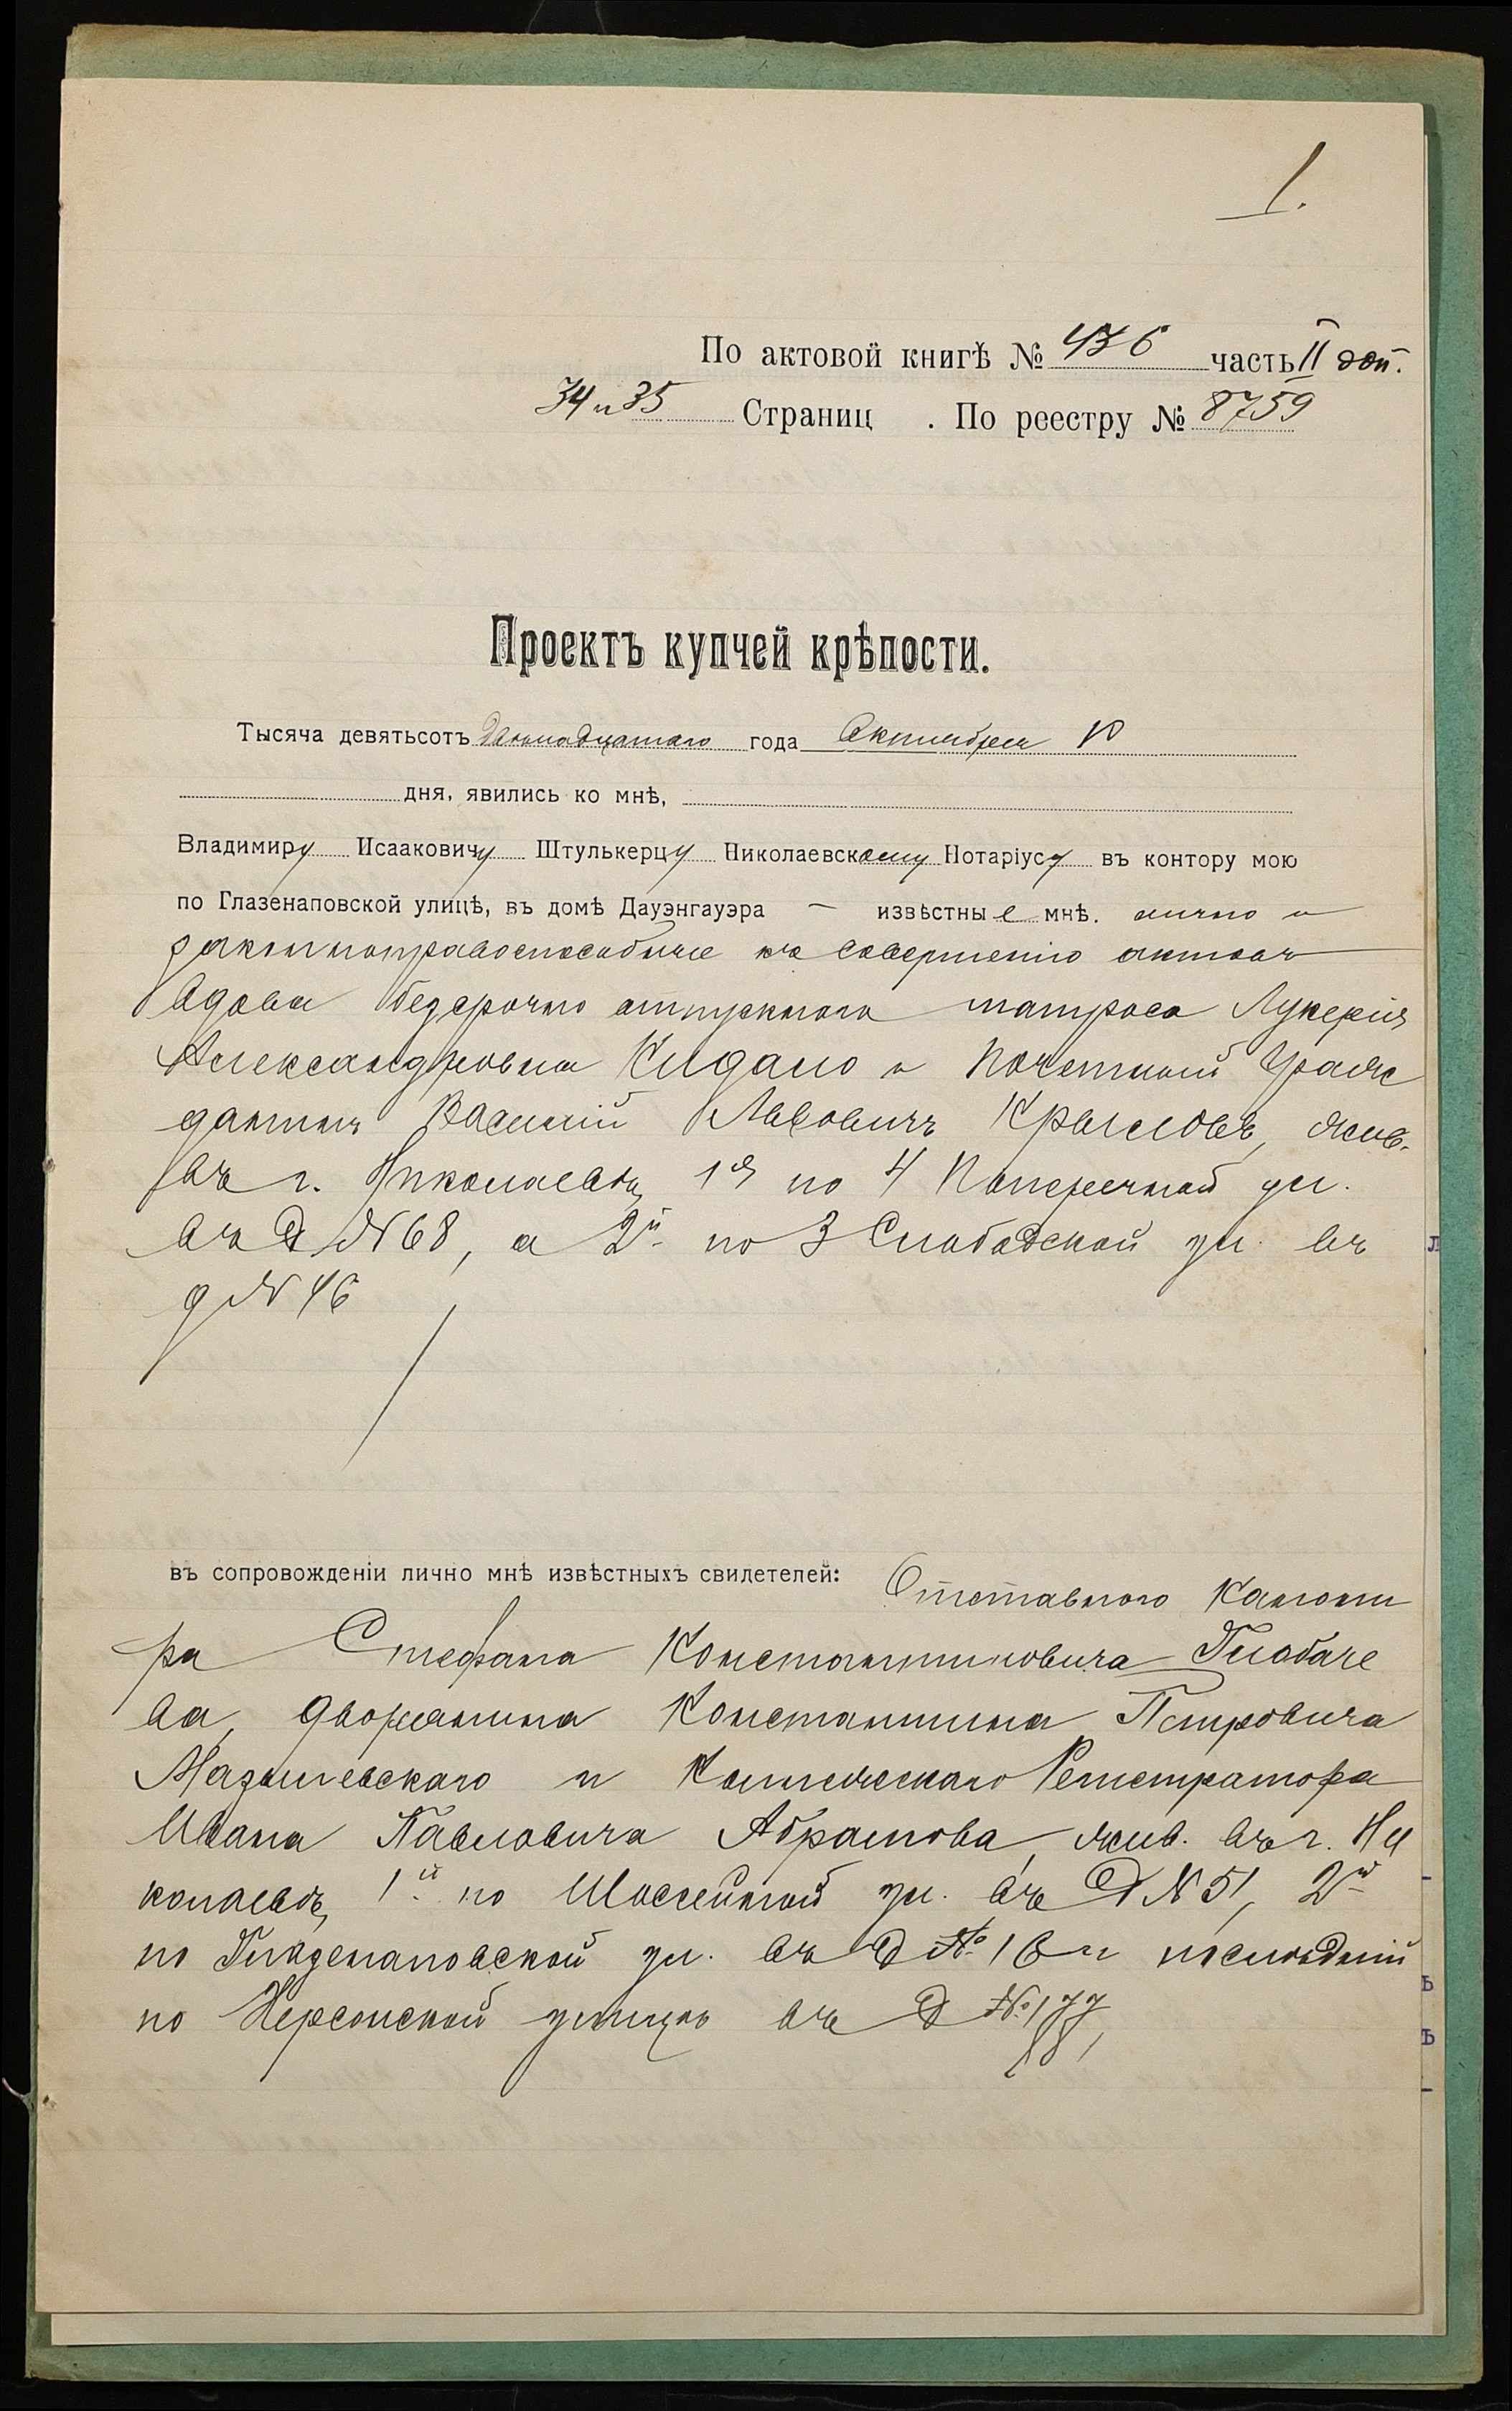 1.
По актовой книгѣ № 436 часть II доп.
34 и 35 Страниц . По реестру № 8759
Проектъ купчей крѣпости.
Тысяча девятьсотъ двѣнадцатаго года Октября 10
дня, явились ко мнѣ,
Владимиру Исааковичу Штулькерцу Николаевскому Нотаріусу въ контору мою
по Глазенаповской улицѣ, въ домѣ Дауэнгауэра — извѣстные мнѣ. лично и
законноправоспособные къ совершенію актовъ
вдова безсрочно отпускного матроса Лукерія
Александровна Кидало и Почетный Граж
данинъ Василій Львовичъ Крыловъ, жив.
въ г. Николаевѣ, 1я по 4 Поперечной ул.
въ д №68, а 2й по 3 Слободской ул. въ
д №46
въ сопровожденіи лично мнѣ извѣстныхъ свидетелей: Отставного Канони
ра Стефана Константиновича
ва, дворянина Константина Петровича
и Коллежскаго Регистратора
Ивана Павловича Абрамова, жив. въ г. Ни
колаевѣ, 1й по Шоссейной ул. въ д №51, 2й
по Глазенаповской ул. въ д № 16 и послѣдній
по Херсонской улицѣ въ д №177,